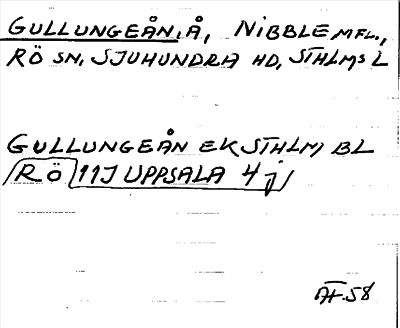 GULLUNGEÅN, Å, NIBBLE MFL.,
RÖ SN, SJUHUNDRA HD, STHLMS L
GULLUNGEÅN EK STHLM BL
RÖ 11J UPPSALA 4j
AF 58